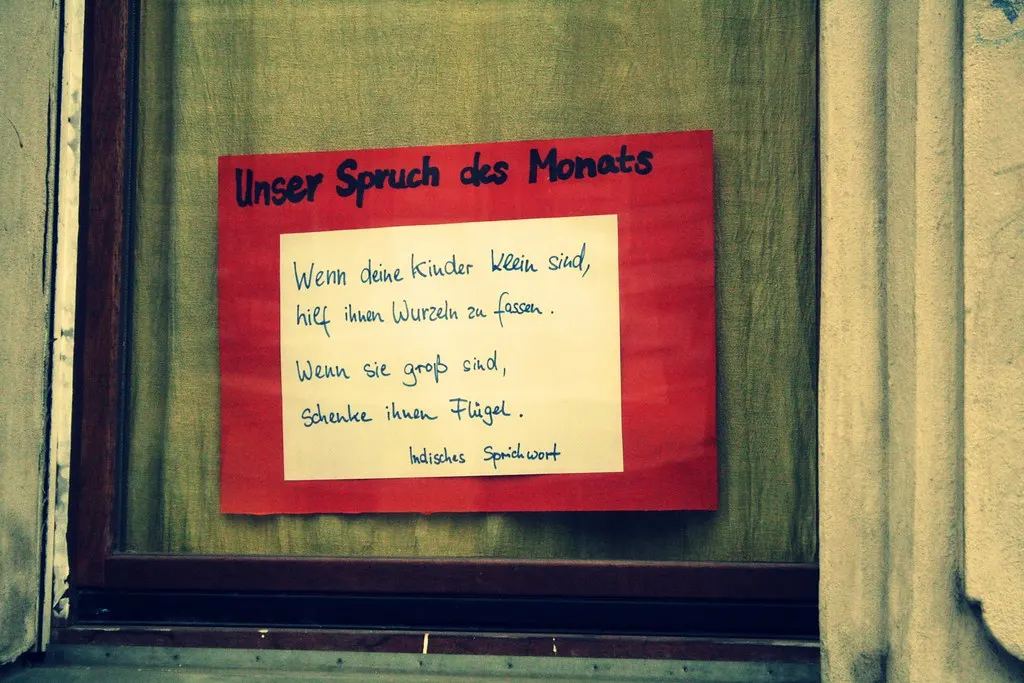 Unser Spruch des Monats
Wenn deine Kinder klein sind,
hilf ihnen Wurzeln zu fassen.
Wenn sie groß sind,
schenke ihnen Flügel.
Indisches Sprichwort